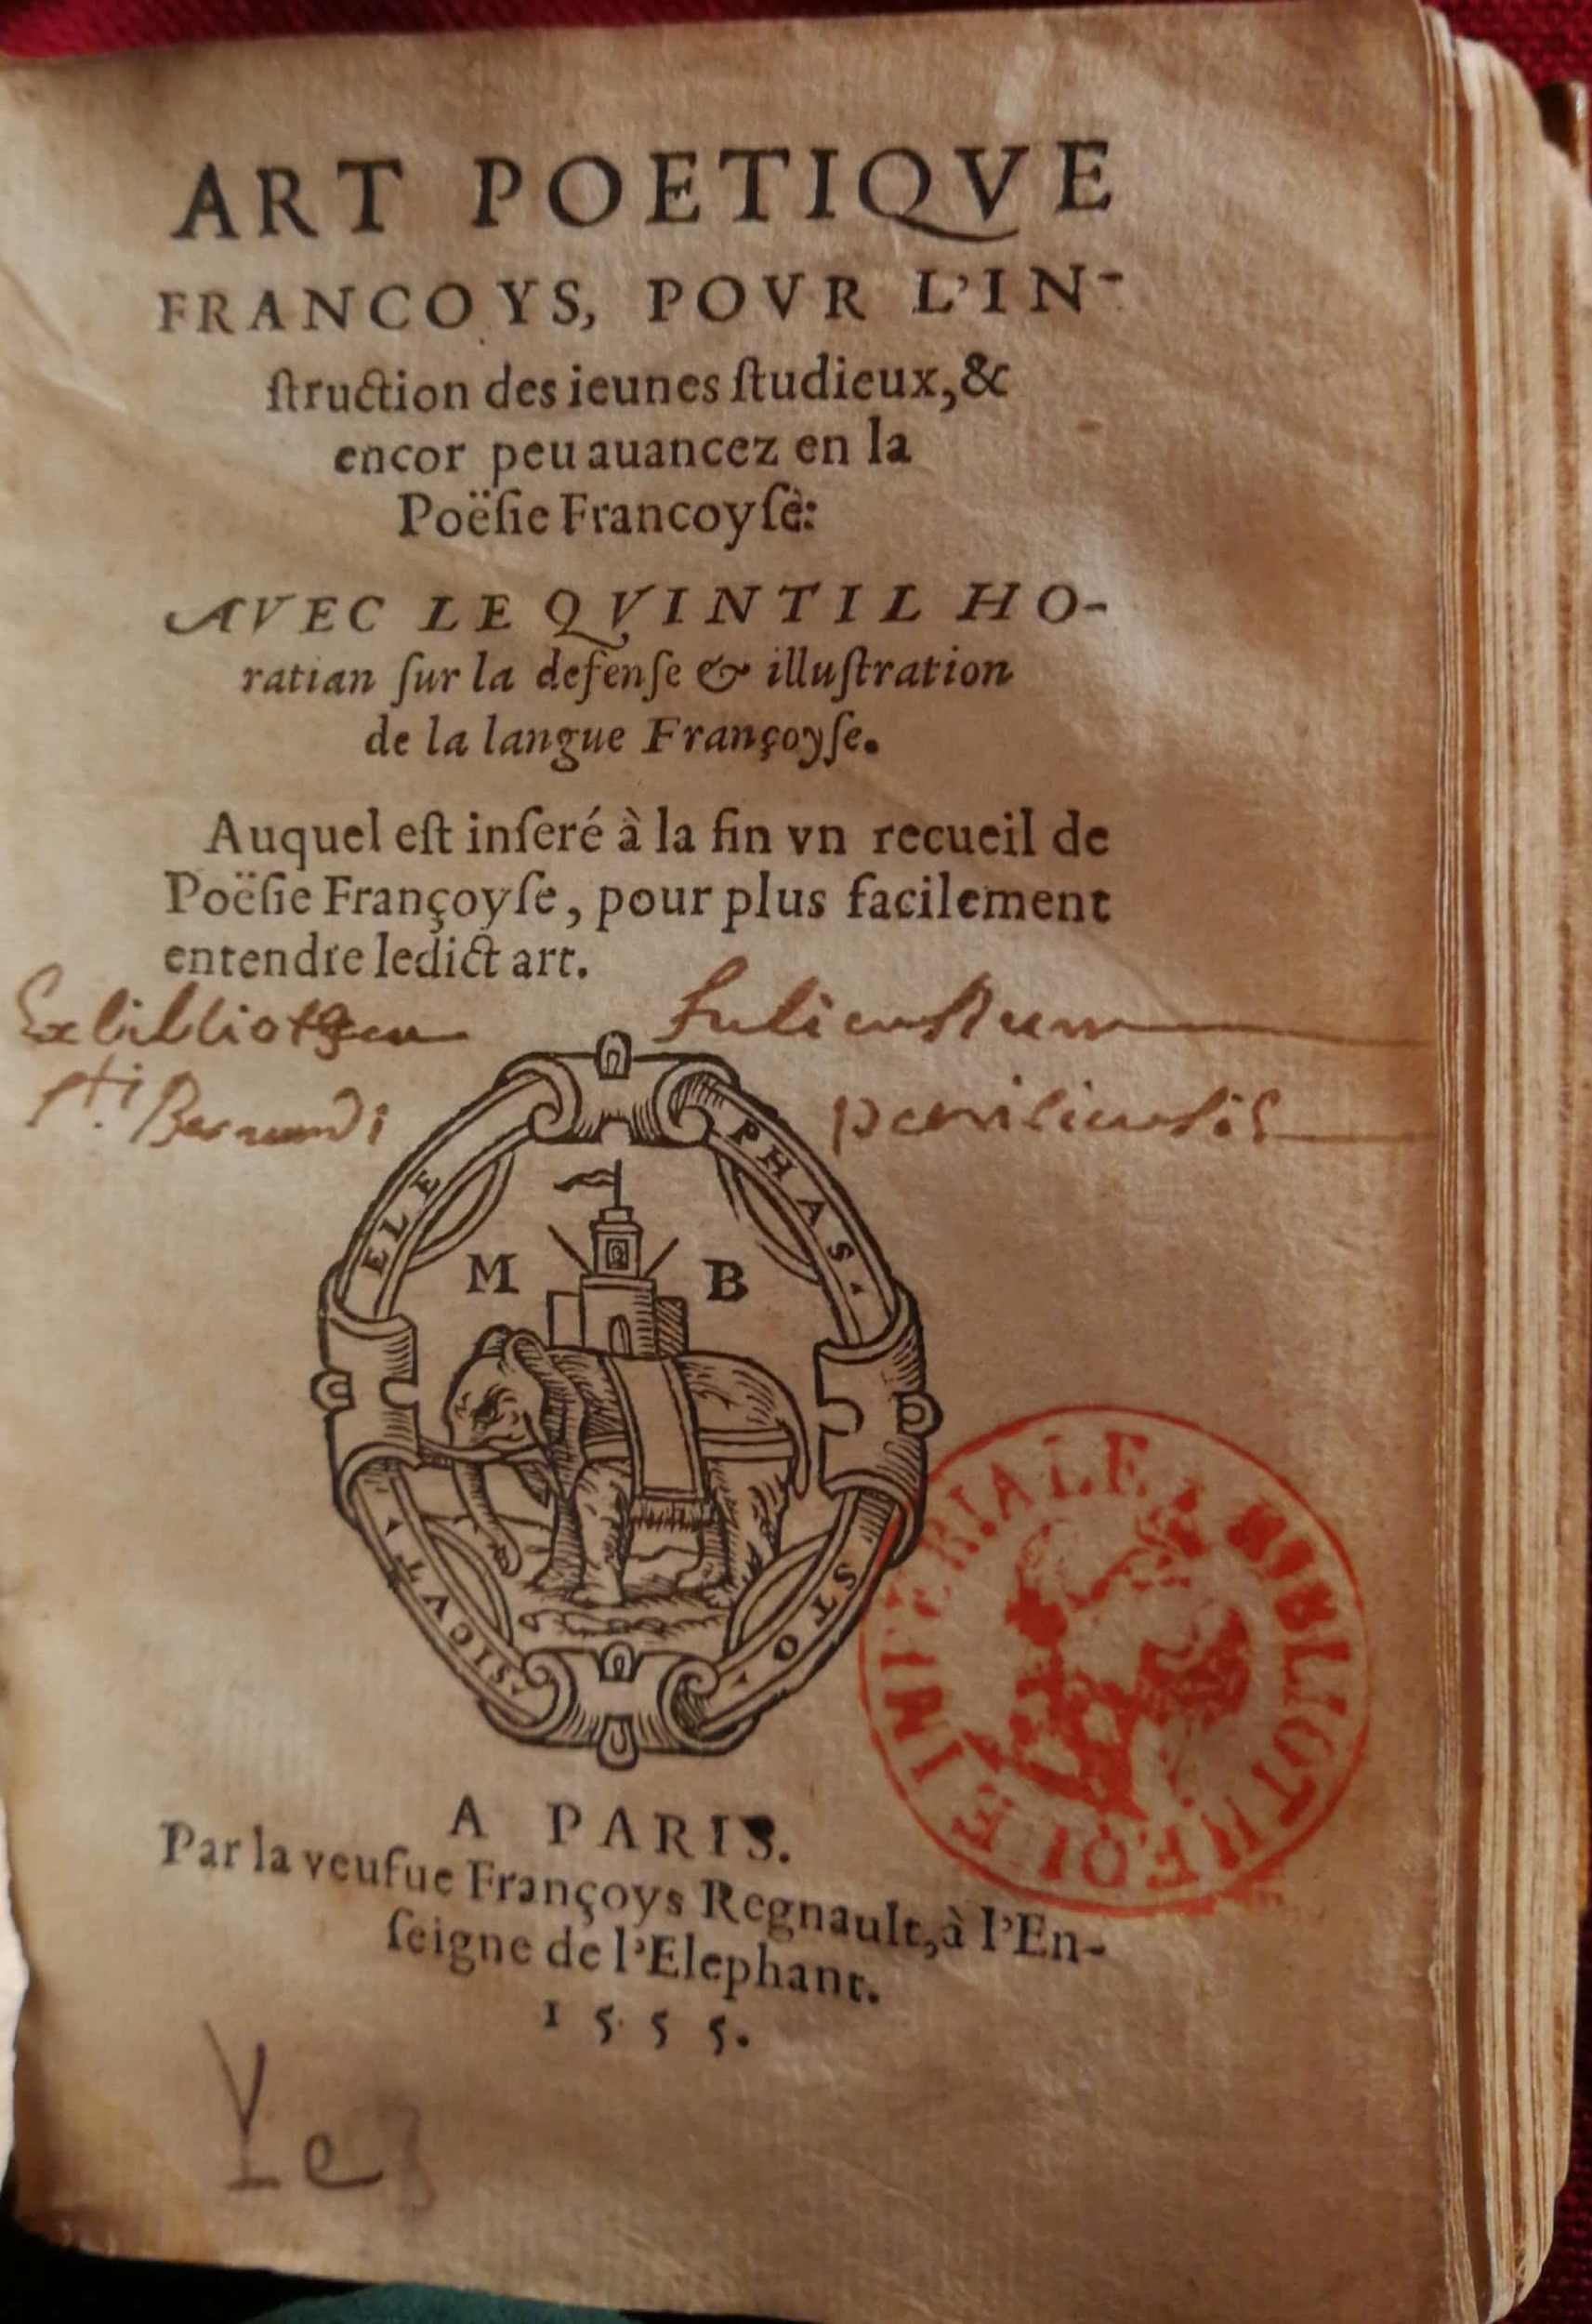 ART POETIQVE
FRANCOYS, POVR L'IN-
ſtruction des ieunes ſtudieux, &
encor peu auancez en la
Poëſie Francoyſe:
AVEC LE QVINTIL HO-
ratian ſur la defenſe & illuſtration
de la langue Françoyſe.
Auquel eſt inſeré à la fin vn recueil de
Poëſie Françoyſe, pour plus facilement
entendre ledict art.
Ex bibliotheca fulienſium
Sti. Bernardi pariſienſis
ELEPHAS.
M B
SICVT
STO
BIBLIOTHEQUE IMPERIALE
A PARIS.
Par la veufue Françoys Regnault, à l'En-
ſeigne de l'Elephant.
1555.
Ye